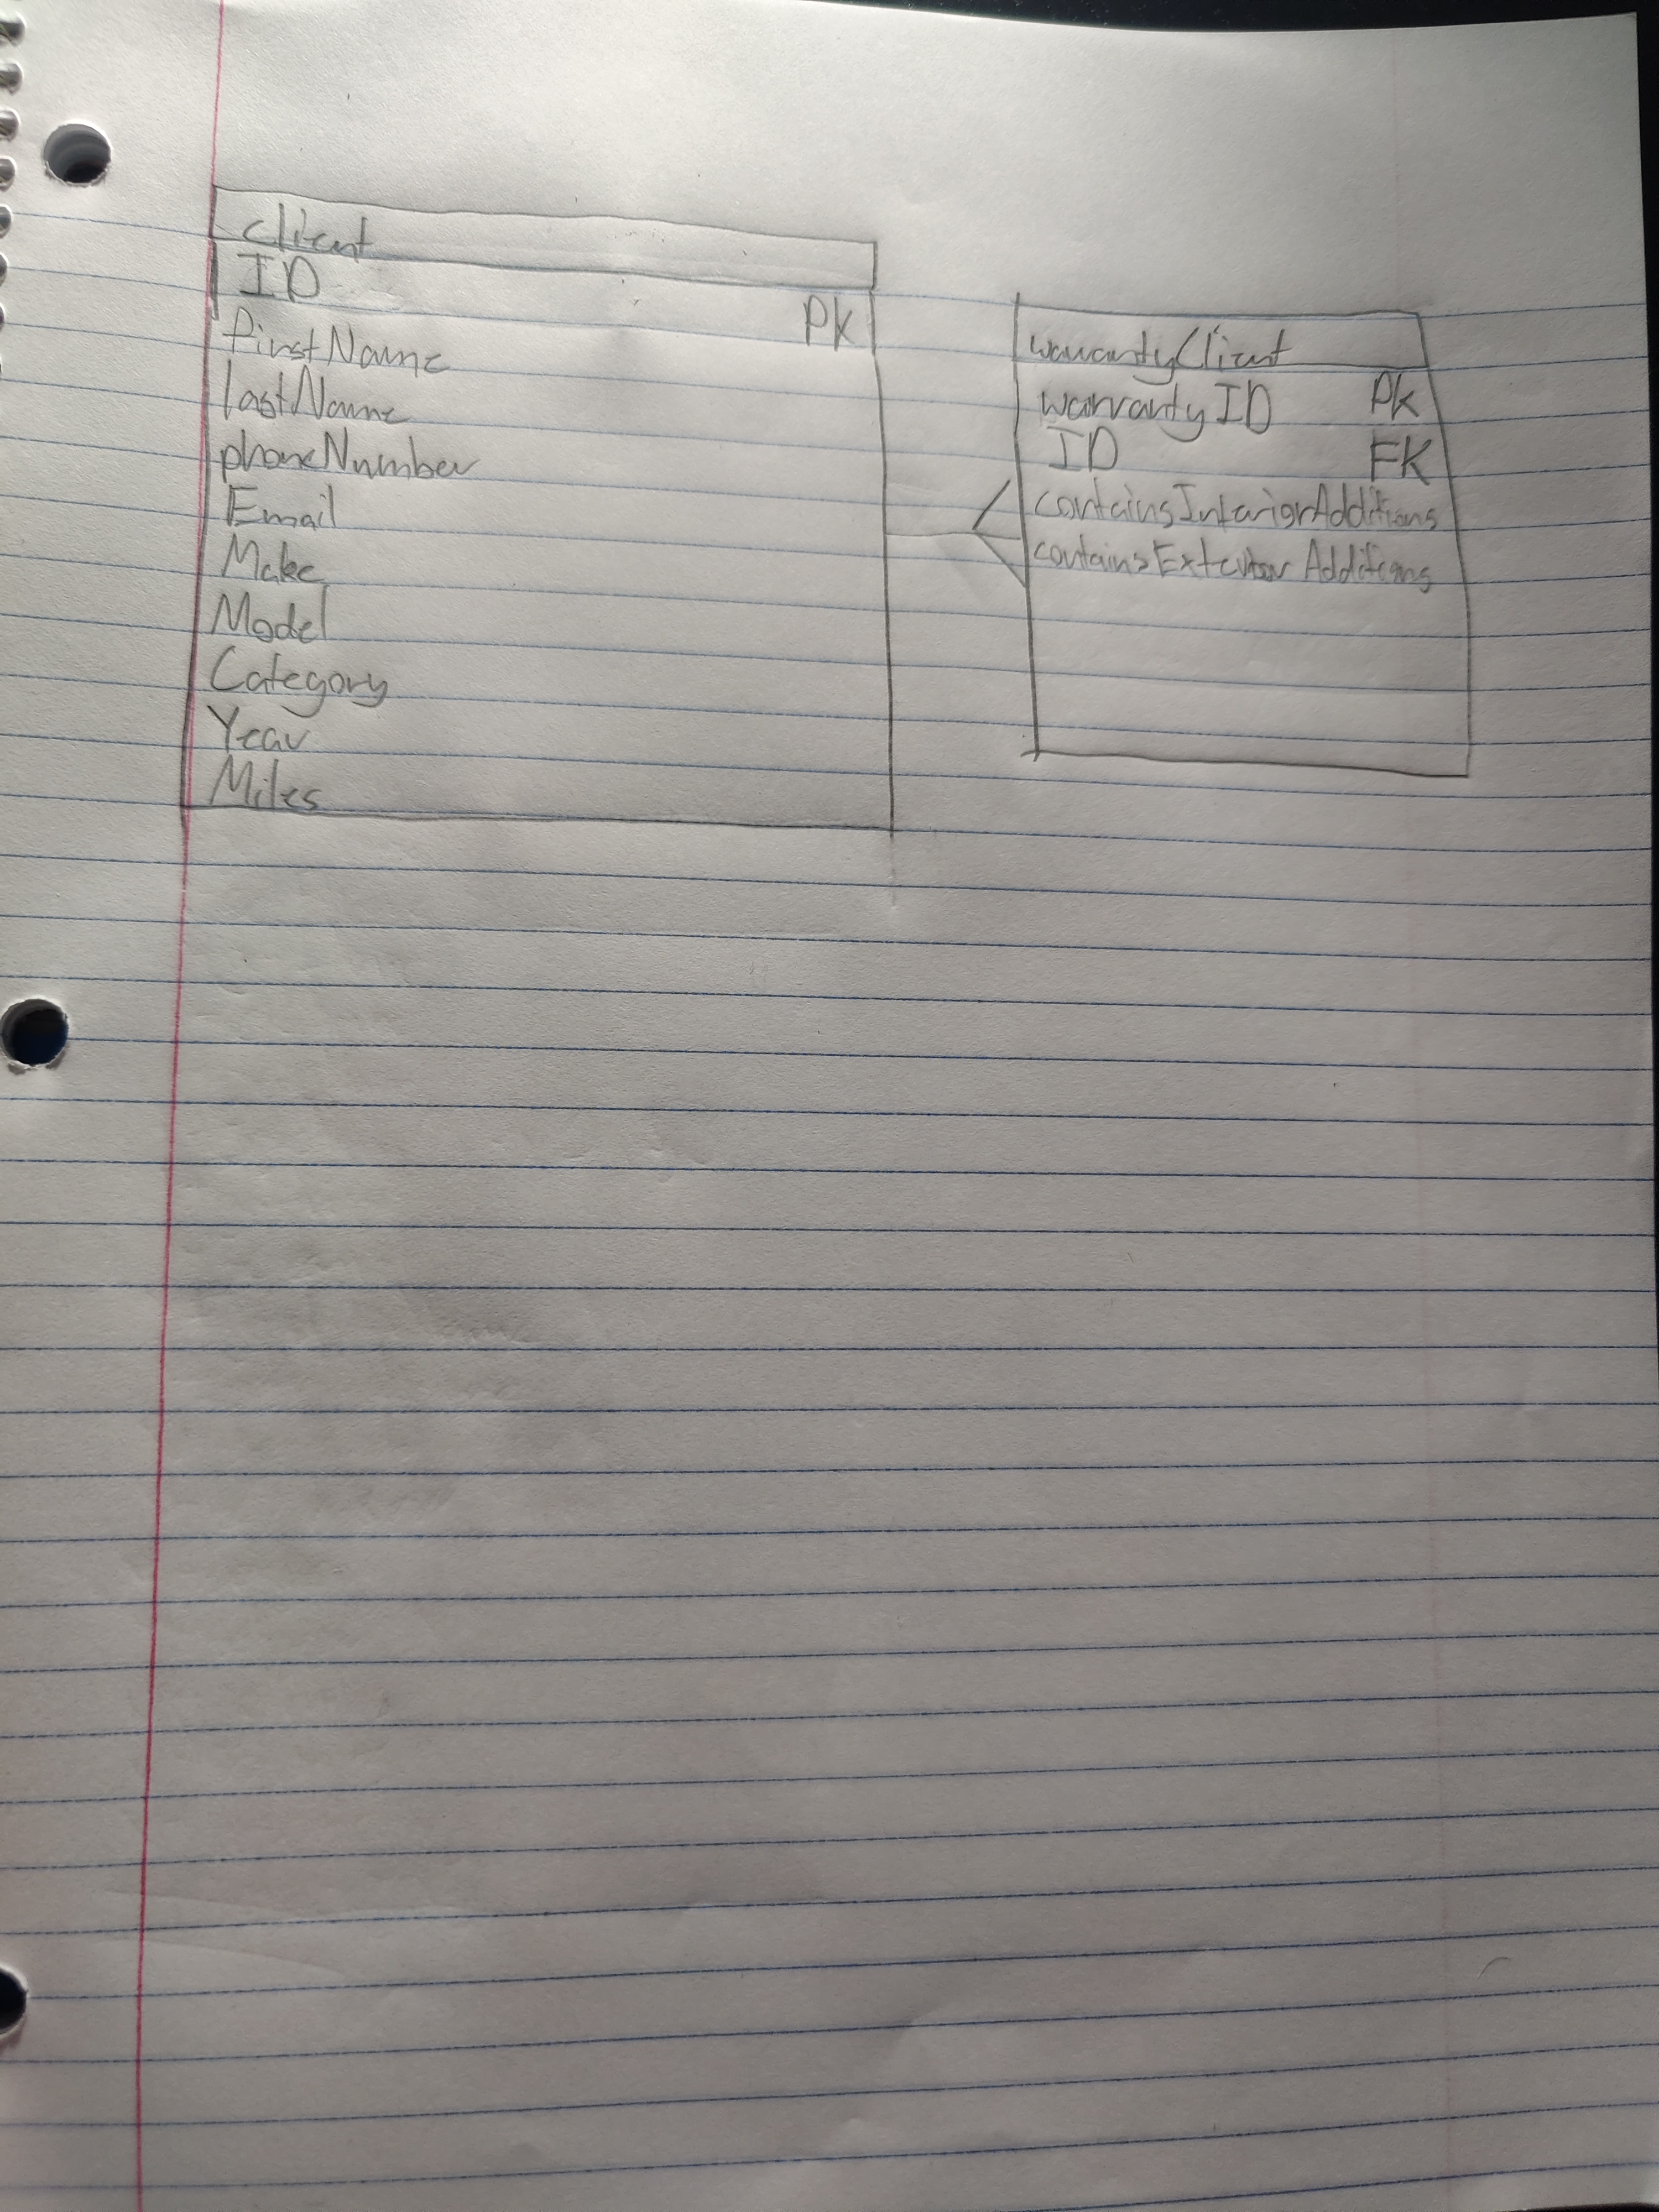 client
ID PK
firstName
lastName
phoneNumber
Email
Make
Model
Category
Year
Miles
warrantyClient
warrantyID PK
ID FK
containsInteriorAdditions
containsExterior Additions